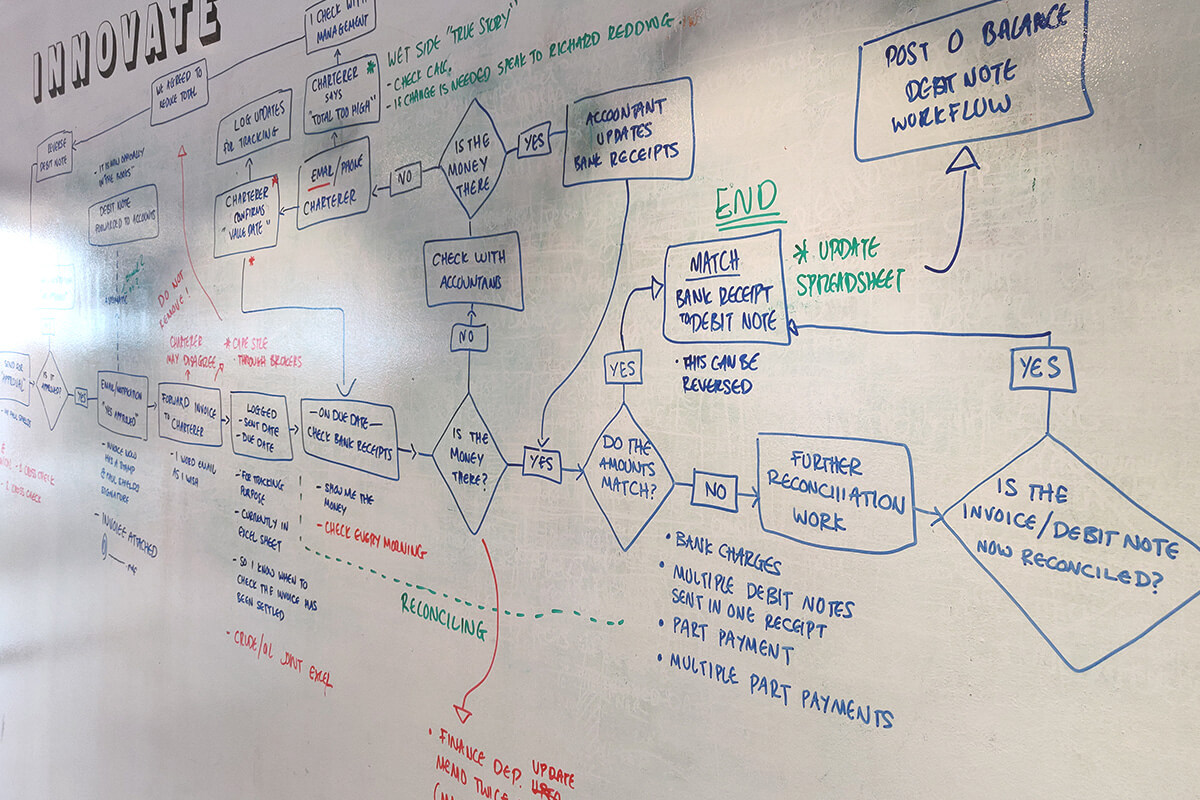 INNOVATE
I CHECK WITH
MANAGEMENT
WE AGREED TO
REDUCE TOTAL
CHARTERER *
SAYS
"TOTAL TOO HIGH"
WET SIDE "TRUE STORY"
- CHECK CALC.
- IF CHANGE IS NEEDED SPEAK TO RICHARD REDDING
LOG UPDATES
FOR TRACKING
REVERSE
DEBIT NOTE
IN THE BOOKS"
DEBIT NOTE
FORWARDED TO ACCOUNTS
AUTOMATIC
CHARTERER *
CONFIRMS
"VALUE DATE"
*
EMAIL/PHONE
CHARTERER
NO
IS THE
MONEY
THERE
YES
ACCOUNTANT
UPDATES
BANK RECEIPTS
POST 0 BALANCE
DEBIT NOTE
WORKFLOW
END
MATCH
BANK RECEIPT
TO DEBIT NOTE
* UPDATE
SPREADSHEET
• THIS CAN BE
REVERSED
CHECK WITH
ACCOUNTANTS
NO
DO NOT
REMOVE!
CHARTERER
MAY DISAGREE
* CAPE SIZE
- THROUGH BROKERS
"APPROVAL"
IS IT
APPROVED?
YES
EMAIL/NOTIFICATION
"YES APPROVED"
FORWARD INVOICE
TO CHARTERER
LOGGED
- SENT DATE
- DUE DATE
- ON DUE DATE -
CHECK BANK RECEIPTS
IS THE
MONEY
THERE?
YES
YES
DO THE
AMOUNTS
MATCH?
NO
FURTHER
RECONCILIATION
WORK
YES
IS THE
INVOICE/DEBIT NOTE
NOW RECONCILED?
- INVOICE NOW
HAS A STAMP
& PAUL SHIELDS
SIGNATURE
- INVOICE ATTACHED
- I WORD EMAIL
AS I WISH
- FOR TRACKING
PURPOSE
- CURRENTLY IN
EXCEL SHEET
- SO I KNOW WHEN TO
CHECK THE INVOICE HAS
BEEN SETTLED
- CRUDE/OIL JOINT EXCEL
- SHOW ME THE
MONEY
- CHECK EVERY MORNING
RECONCILING
• BANK CHARGES
• MULTIPLE DEBIT NOTES
SENT IN ONE RECEIPT
• PART PAYMENT
• MULTIPLE PART PAYMENTS
• FINANCE DEP. UPDATE
MEMO TWICE